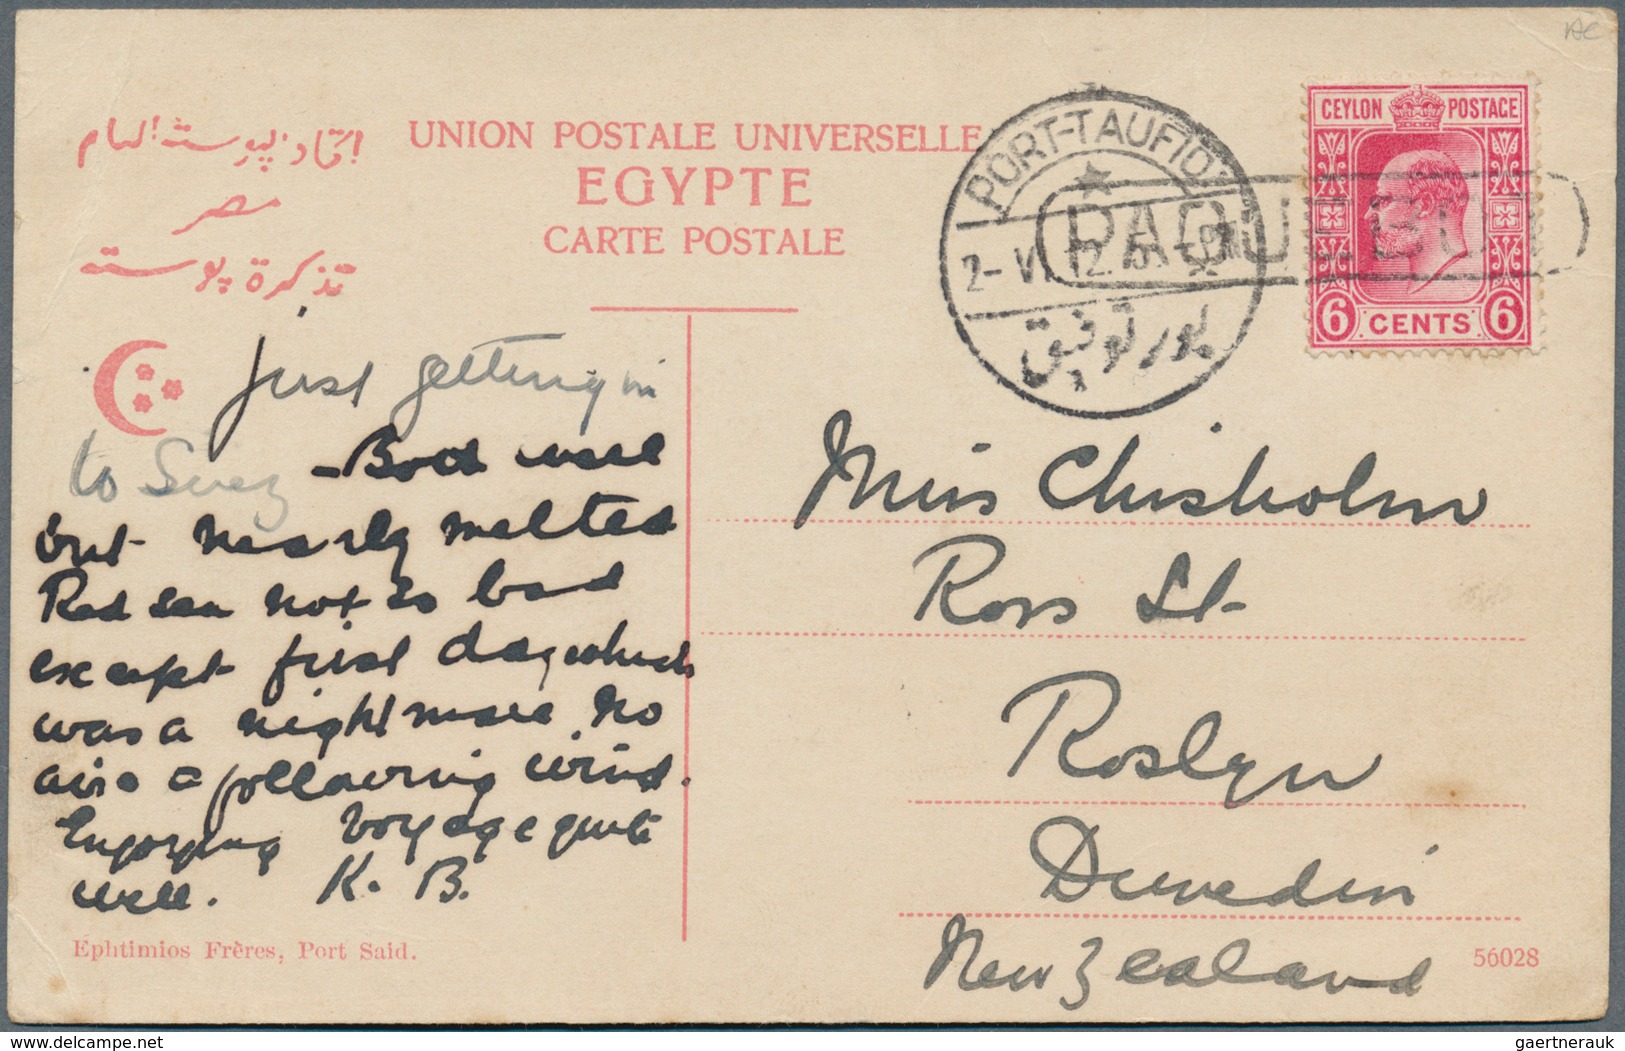 AC
CEYLON POSTAGE
6 CENTS 6
اتحاد پوسته العام
مصر
تذكرة پوسته
UNION POSTALE UNIVERSELLE
EGYPTE
CARTE POSTALE
PORT-TAUFIQ
PAQUEBOT
2- VI 12
بور توفيق
just getting in
to Suez - Both well
but nearly melted
Red sea not so bad
except first day which
was a nightmare no
air & following wind.
Enjoying voyage quite
well. K. B.
Miss Chisholm
Ross St
Roslyn
Dunedin
New Zealand
Ephtimios Frères, Port Said.
56028
gaertnerauk